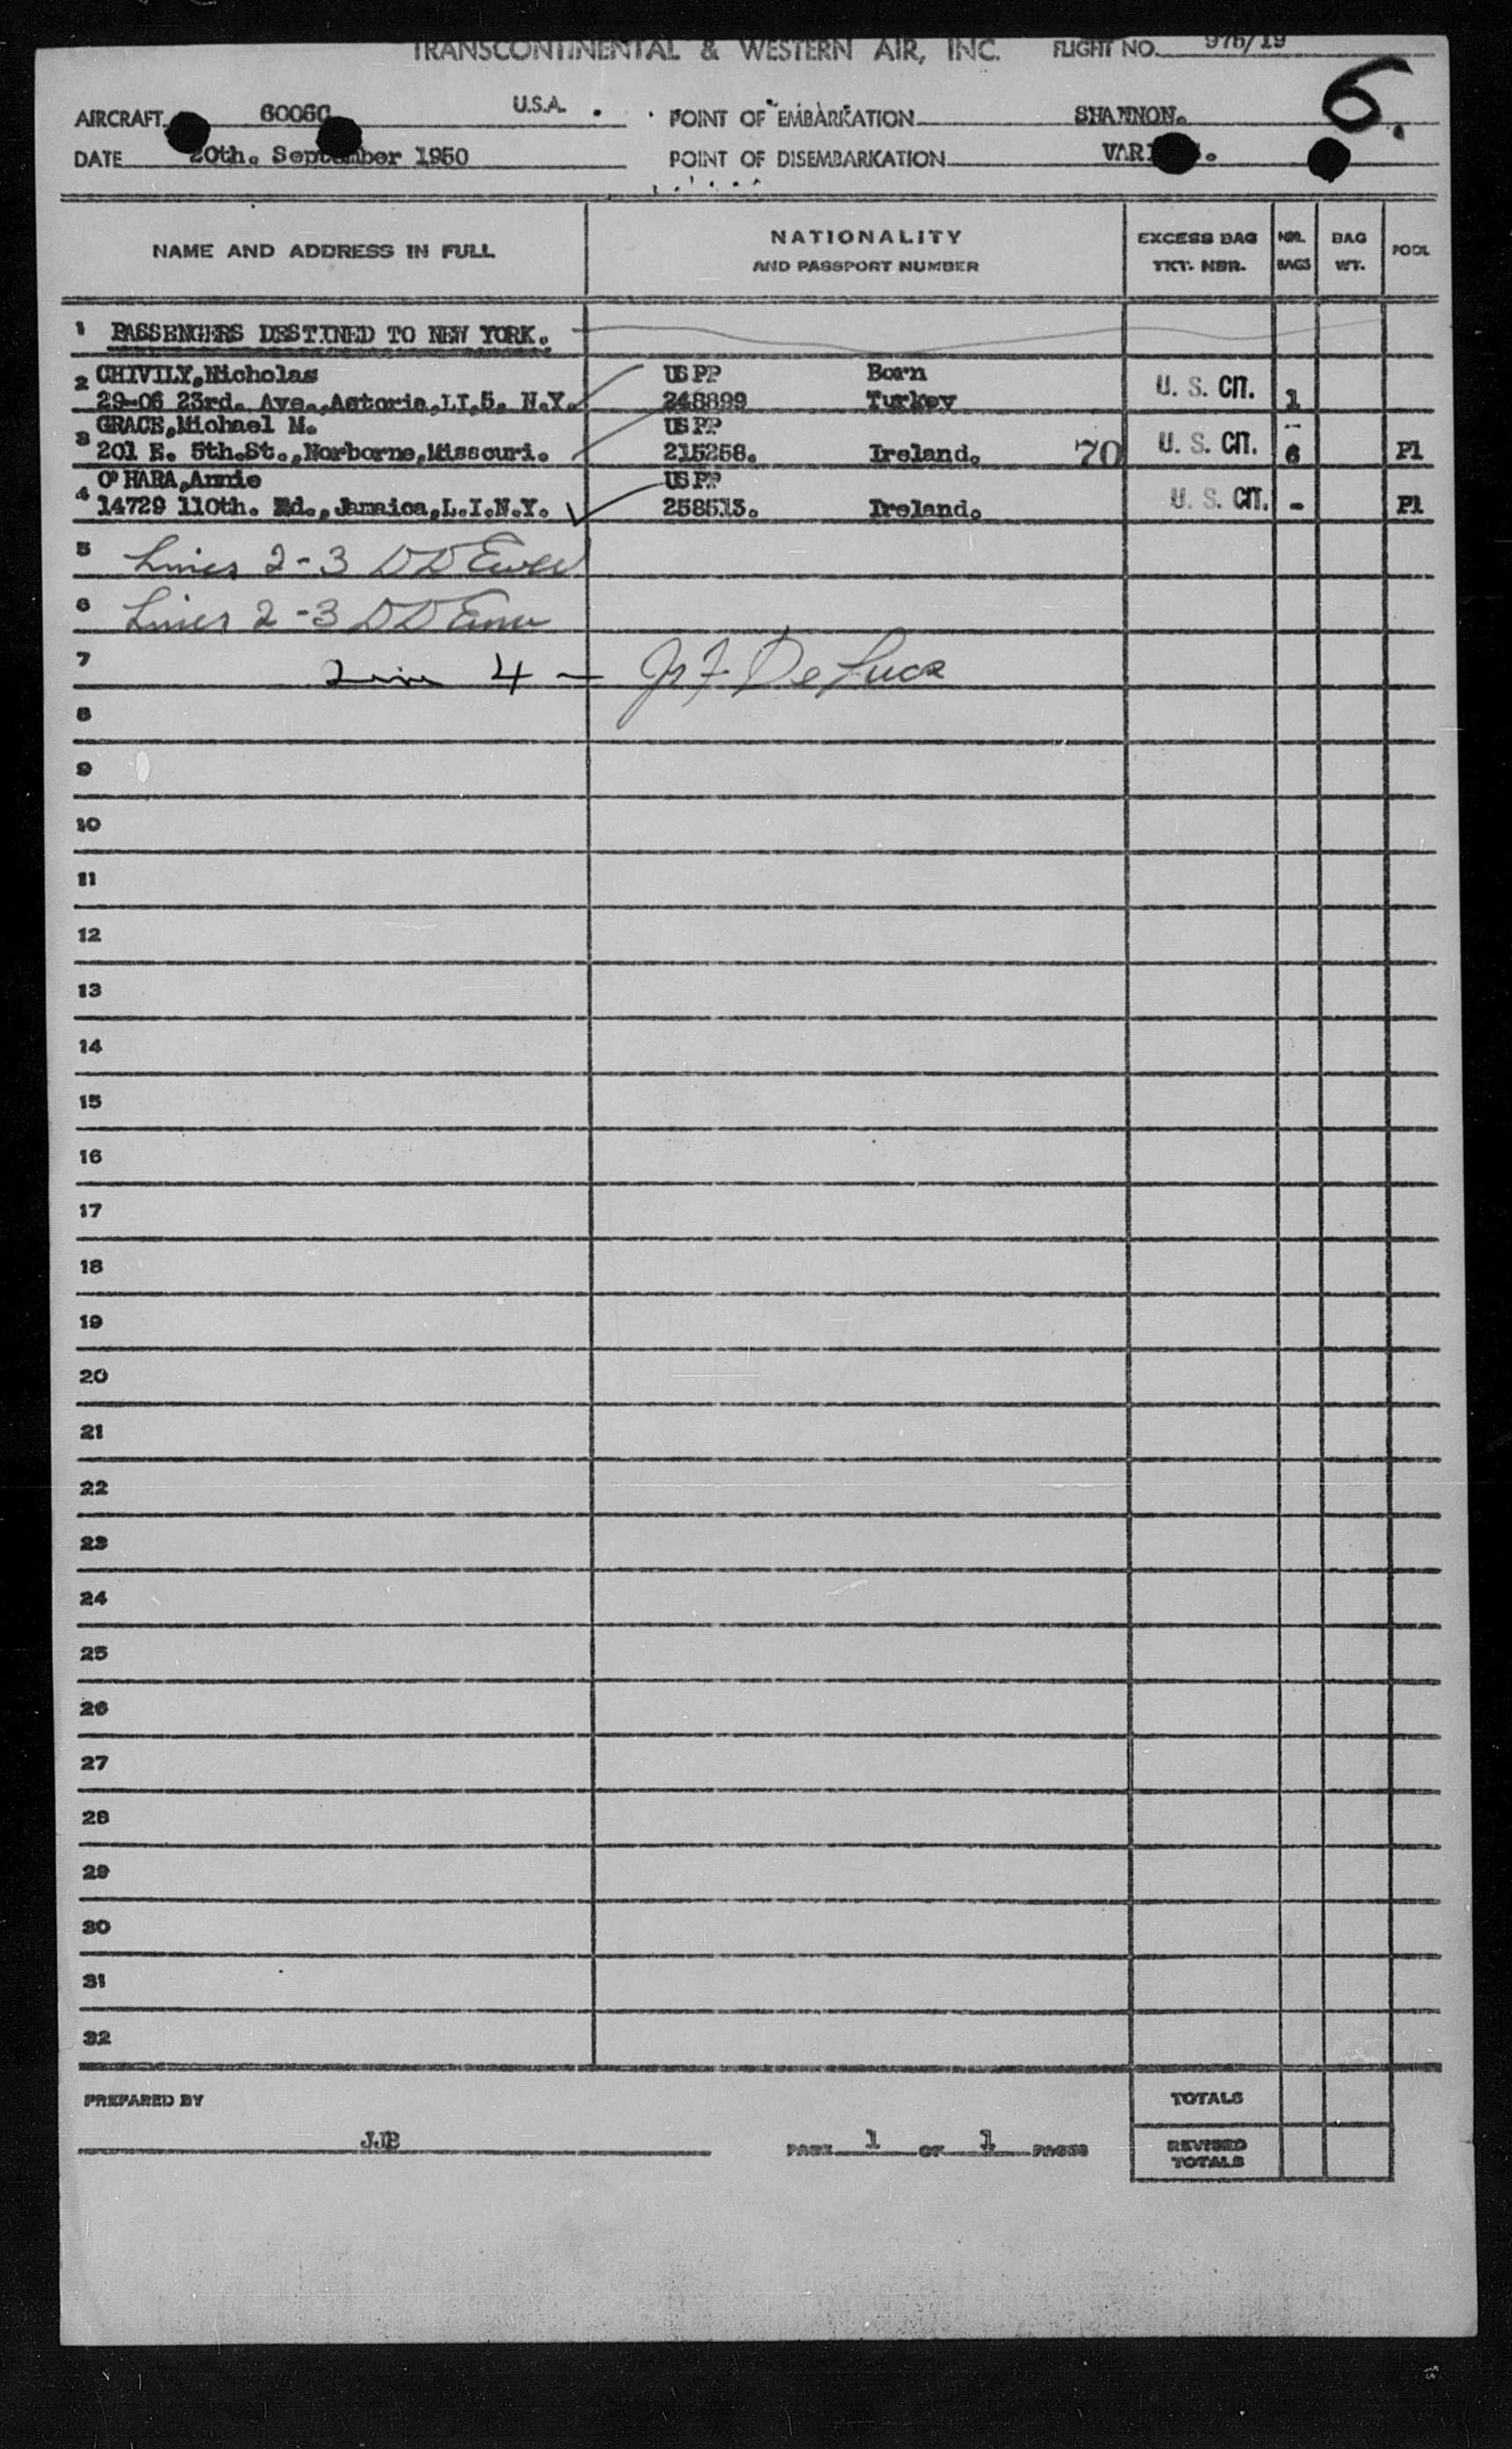 TRANSCONTINENTAL & WESTERN AIR, INC. FLIGHT NO. 975/19
6.
AIRCRAFT U.S.A. POINT OF EMBARKATION SHANNON.
DATE 20th. September 1950 POINT OF DISEMBARKATION
NAME AND ADDRESS IN FULL NATIONALITY AND PASSPORT NUMBER EXCESS BAG TKT. NBR. NBR. BAGS BAG WT. POOL
1 PASSENGERS DESTINED TO NEW YORK.
2 CHIVILY,Nicholas US PP Born
29-06 23rd. Ave.,Astoria,LI,5. N.Y. 248899 Turkey U. S. CIT. 1
3 GRACE,Michael M. US PP
201 E. 5th.St.,Norborne,Missouri. 215258. Ireland. 70 U. S. CIT. 6 Pl
4 O'HARA,Annie US PP
14729 110th. Rd.,Jamaica,L.I.N.Y. 258513. Ireland. U. S. CIT. - Pl
5 Lines 2-3 DD
6 Lines 2-3 DD
7 Line 4 - De Luca
8
9
10
11
12
13
14
15
16
17
18
19
20
21
22
23
24
25
26
27
28
29
30
31
32
PREPARED BY TOTALS
JJB PAGE 1 OF 1 PAGES REVISED TOTALS